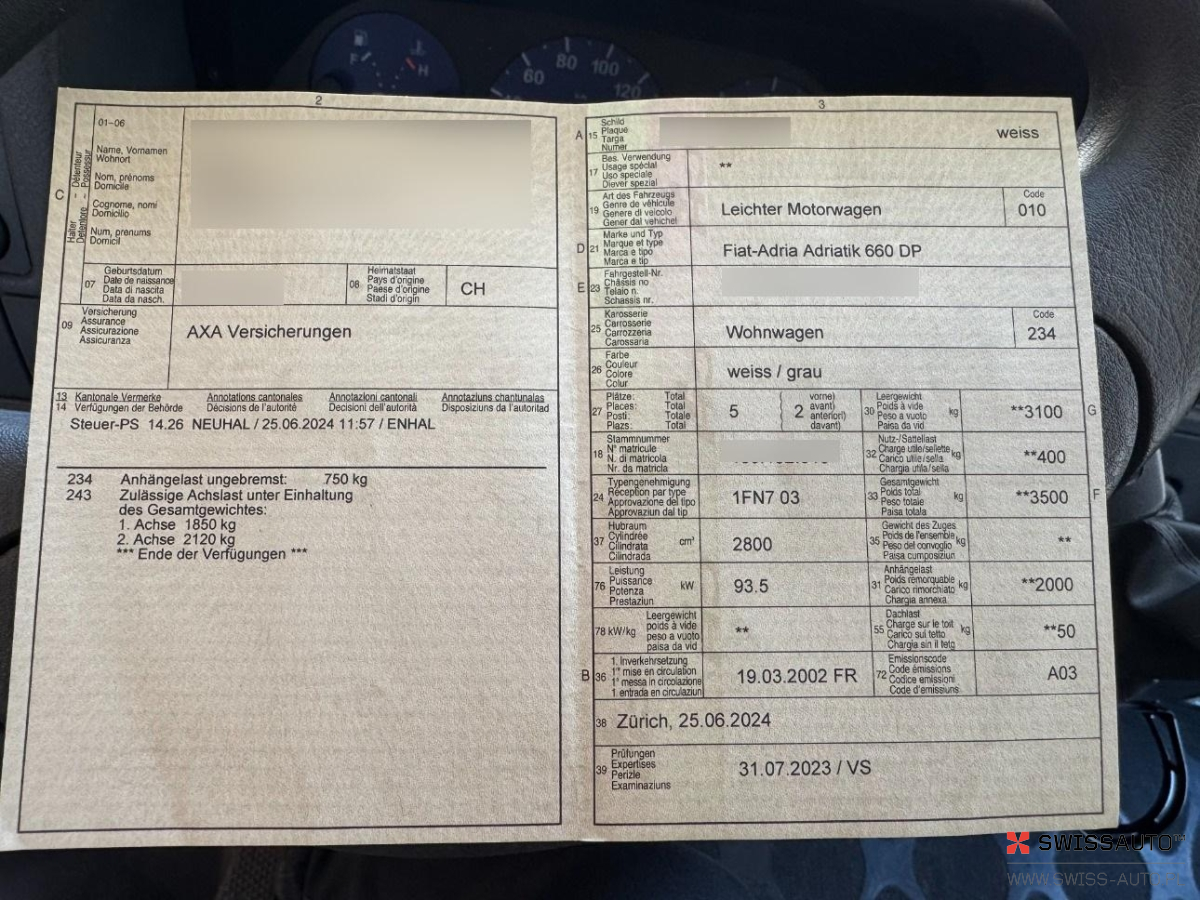 F
H
60
80
100
120
2
01–06
Halter – Détenteur
Detentore – Possessur
Name, Vornamen
Wohnort
Nom, prénoms
Domicile
Cognome, nomi
Domicilio
Num, prenums
Domicil
C
07
Geburtsdatum
Date de naissance
Data di nascita
Data da nasch.
08
Heimatstaat
Pays d'origine
Paese d'origine
Stadi d'origin
CH
09
Versicherung
Assurance
Assicurazione
Assicuranza
AXA Versicherungen
13 Kantonale Vermerke Annotations cantonales Annotazioni cantonali Annotaziuns chantunalas
14 Verfügungen der Behörde Décisions de l'autorité Decisioni dell'autorità Disposiziuns da l'autoritad
Steuer-PS 14.26 NEUHAL / 25.06.2024 11:57 / ENHAL
234 Anhängelast ungebremst: 750 kg
243 Zulässige Achslast unter Einhaltung
des Gesamtgewichtes:
1. Achse 1850 kg
2. Achse 2120 kg
*** Ende der Verfügungen ***
3
A 15
Schild
Plaque
Targa
Numer
weiss
17
Bes. Verwendung
Usage spécial
Uso speciale
Diever spezial
**
19
Art des Fahrzeugs
Genre de véhicule
Genere di veicolo
Gener dal vehichel
Leichter Motorwagen
Code
010
D 21
Marke und Typ
Marque et type
Marca e tipo
Marca e tip
Fiat-Adria Adriatik 660 DP
E 23
Fahrgestell-Nr.
Châssis no
Telaio n.
Schassis nr.
25
Karosserie
Carrosserie
Carrozzeria
Carossaria
Wohnwagen
Code
234
26
Farbe
Couleur
Colore
Colur
weiss / grau
27
Plätze: Total
Places: Total
Posti: Totale
Plazs: Total
5
2
vorne)
avant)
anteriori)
davant)
30
Leergewicht
Poids à vide
Peso a vuoto
Paisa da vid
kg
**3100
G
18
Stammnummer
N° matricule
N. di matricola
Nr. da matricla
32
Nutz-/Sattellast
Charge utile/sellette
Carico utile/sella
Chargia utila/sella
kg
**400
24
Typengenehmigung
Réception par type
Approvazione del tipo
Approvaziun dal tip
1FN7 03
33
Gesamtgewicht
Poids total
Peso totale
Paisa totala
kg
**3500
F
37
Hubraum
Cylindrée
Cilindrata
Cilindrada
cm³
2800
35
Gewicht des Zuges
Poids de l'ensemble
Peso del convoglio
Paisa cumposiziun
kg
**
76
Leistung
Puissance
Potenza
Prestaziun
kW
93.5
31
Anhängelast
Poids remorquable
Carico rimorchiato
Chargia annexa
kg
**2000
78 kW/kg
Leergewicht
poids à vide
peso a vuoto
paisa da vid
**
55
Dachlast
Charge sur le toit
Carico sul tetto
Chargia sin il tetg
kg
**50
B 36
1. Inverkehrsetzung
1re mise en circulation
1a messa in circolazione
1 entrada en circulaziun
19.03.2002 FR
72
Emissionscode
Code émissions
Codice emissioni
Code d'emissiuns
A03
38 Zürich, 25.06.2024
39
Prüfungen
Expertises
Perizie
Examinaziuns
31.07.2023 / VS
SWISSAUTO
WWW.SWISS-AUTO